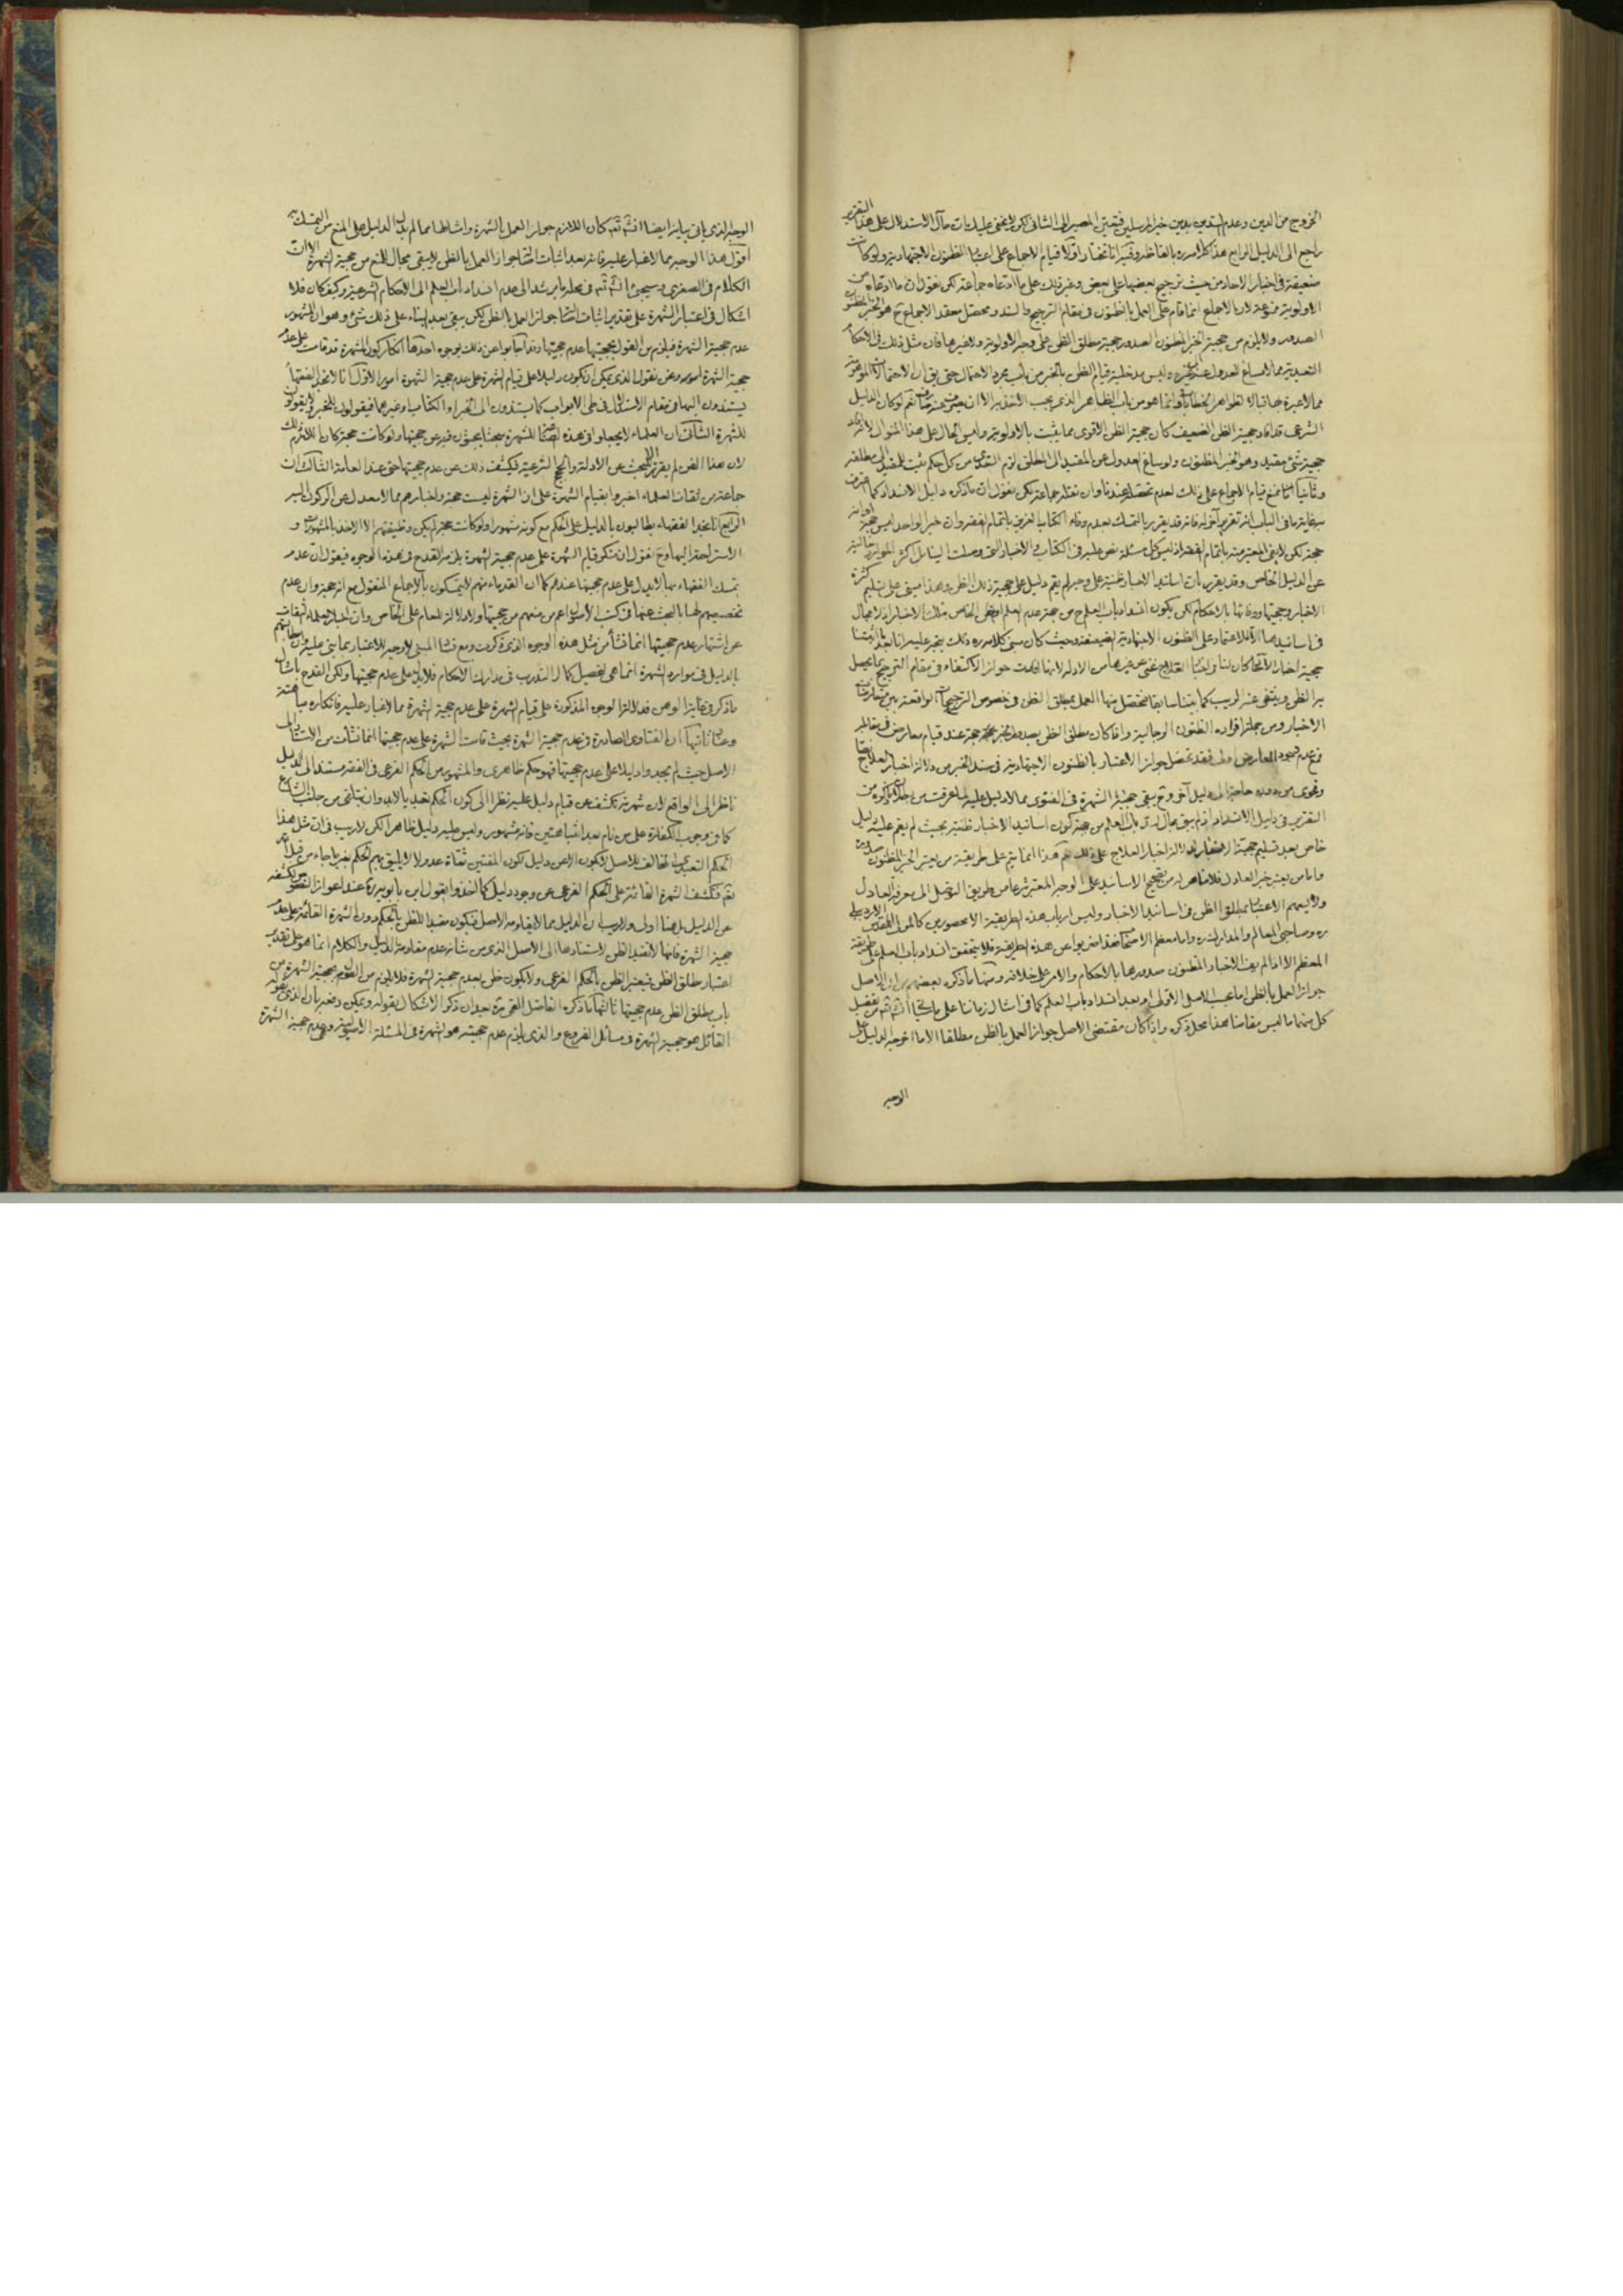 الخروج من الدين وعدم التدين بدين خير المرسلين فتعين المصير الى الثانى لكن لا يخفى عليك ان مآل الاستدلال على هذا التقرير
راجع الى الدليل الرابع هذا كلامه ره بالفاظه وفيه انا نختار اولا قيام الاجماع على اعتبار الظنون الاجتهادية ولو كانت
ضعيفة فى اخبار الاحاد من حيث ترجيح بعضها على بعض وغير ذلك على ما ادعاه جماعة لكن نقول ان ما ادعاه من
الاولوية ممنوعة لان الاجماع انما قام على العمل بالظنون فى مقام الترجيح والسند ومحصل معقد الاجماع ح هو الخبر المظنون
الصدور ولا يلزم من حجية الخبر المظنون الصدور حجية مطلق الظن على وجه الاولوية ولا غيرها فان مثل ذلك فى الاحكام
التعبدية مما لا مساغ للعدول عنه الى غيره وليس مدخلية قيام الظن بالخبر من باب مجرد الاحتمال حتى يق ان الاحتمالات الموهومة
مما لا عبرة بها قبالا لظواهر الخطابات وانما هو من باب الظاهر الذى يجب الاخذ به الا ان
الشرعى قد افاد حجية الظن الضعيف كان حجية الظن الاقوى مما يثبت بالاولوية وليس الحال على هذا المنوال لانه افاد
حجية شئ مقيد وهو الخبر المظنون ولو ساغ العدول عن المقيد الى المطلق لزم التعدى من كل حكم ثبت للمقيد الى مطلقه
وثانيا انا نمنع قيام الاجماع على ذلك لعدم تحققه عندنا وان نقله جماعة لكن نقول ان ما ذكره دليل الانسداد كما اعترف
به غاية ما فى الباب انه تقرير آخر له فانه قد يقرر بالتمسك بعدم وفاء الكتاب العزيز باتمام الفقه وان خبر الواحد ليس حجة او انه
حجة لكن لا يفى المعتبر منه باتمام الفقه اذ ليس كل مسئلة نص عليه فى الكتاب والاخبار التى وصلت الينا بل اكثر الموارد خالية
عن الدليل الخاص وقد يقرر بان اسانيد الاخبار ظنية على وجه لم يقم دليل على حجية ذلك الظن وهذا مبنى على تسليم كثرة
الاخبار وحجيتها ووفائها بالاحكام لكن يكون انسداد باب العلم ح من جهة عدم العلم او الظن الخاص بتلك الاخبار اذ لا مجال
فى اسانيدها الا للاعتماد على الظنون الاجتهادية الضعيفة وحيث كان مبنى كلامه ره ذلك يتجه عليه انا بعد ما اثبتنا
حجية اخبار الآحاد كان لنا فى اخبار العلاج غنى عن غيرها من الادلة لانها افادت جواز الاكتفاء فى مقام الترجيح بما يحصل
به الظن وينتفى عنه الريب كما بيناه سابقا فتحصل منها العمل بمطلق الظن فى خصوص الترجيحات الواقعة بين متعارضات
الاخبار ومن جملة افراده الظنون الرجالية واذا كان مطلق الظن بصدور الخبر حجة عند قيام معارض فى مقابله
فمع عدم وجود المعارض اولى فقد تحصل جواز الاعتبار بالظنون الاجتهادية فى سند الخبر من دلالة اخبار العلاج نصا
وفحوى من دون حاجة الى دليل آخر وح يبقى حجية الشهرة فى الفتوى مما لا دليل عليه لما عرفت من
التقرير فى دليل الانسداد اذ لم يبق مجال لسد باب العلم من جهة كون اسانيد الاخبار ظنية بحيث لم يقم عليه دليل
خاص بعد تسليم حجية الاخبار ودلالة اخبار العلاج على ذلك نعم هذا انما يتم على طريقة من يعتبر الخبر المظنون صدوره
واما من يعتبر خبر العادل فلا مناص له من تصحيح الاسانيد على الوجه المعتبر شرعا من طريق التوصل الى معرفة العادل
ولا يسعهم الاعتبار بمطلق الظن فى اسانيد الاخبار وليس ارباب هذه الطريقة الا محصورين كالمولى المقدس الاردبيلى
ره وصاحبى المعالم والمدارك ره واما معظم الاصحاب فقد اضربوا عن هذه الطريقة فلا يتحقق انسداد باب العلم على طريقة
المعظم الا اذا لم يف الاخبار المظنون صدورها بالاحكام والامر على خلافه ومنها ما ذكره بعضهم من ان الاصل
جواز العمل بالظن اما بحسب الاصل الاولى او بعد انسداد باب العلم كما فى امثال زماننا على ما يجئ انش تع تفصيل
كل منهما ما ليس مقامنا هذا محل ذكره واذا كان مقتضى الاصل جواز العمل بالظن مطلقا الا ما اخرجه الدليل على
الوجه
الوجه الذى ياتى بيانه ايضا انش تع كان اللازم جواز العمل بالشهرة وامثالها مما لم يدل الدليل على المنع من التمسك به
اقول هذا الوجه مما لا غبار عليه فانه بعد اثبات اصالة جواز العمل بالظن لا يبقى مجال للمنع من حجية الشهرة الا ان
الكلام فى الصغرى وسيجئ انش تع فى محله ما يرشد الى عدم انسداد باب العلم الى الاحكام الشرعية وكيف كان فلا
اشكال فى اعتبار الشهرة على تقدير اثبات اصالة جواز العمل بالظن لكن يبقى بعد البناء على ذلك شئ وهو ان المشهور
عدم حجية الشهرة فيلزم من القول بحجيتها عدم حجيتها وقد اجابوا عن ذلك بوجوه احدها انكار كون الشهرة قد قامت على عدم
حجية الشهرة امور ونحن نقول الذى يمكن ان يكون دليلا على قيام الشهرة على عدم حجية الشهرة امور الاول انا لا نجد الفقهاء
يستندون اليها فى مقام الاستدلال فى طى الابواب كما يستندون الى الخبر او الكتاب او غيرهما فيقولون للخبر ولا يقولون
للشهرة الثانى ان العلماء لم يجعلوا فى هذه للشهرة مبحثا يبحثون فيه عن حجيتها ولو كانت حجة كان اللازم ذلك
لان هذا الفن لم يقرر الا للبحث عن الادلة والحجج الشرعية فيكشف ذلك عن عدم حجيتها حتى عند العامة الثالث ان
جماعة من ثقات العلماء اخبروا بقيام الشهرة على ان الشهرة ليست حجة واخبارهم مما لا معدل عن الركون اليه
الرابع انا نجد الفقهاء يطالبون بالدليل على الحكم مع كونه مشهورا ولو كانت حجة لم يكن وظيفتهم الا الاخذ بالمشهور و
الاستراحة اليها وح نقول ان منكر قيام الشهرة على عدم حجية الشهرة يلزمه القدح فى هذه الوجوه فيقول ان عدم
تمسك الفقهاء بها لا يدل على عدم حجيتها عندهم كما ان القدماء منهم لا يتمسكون بالاجماع المنقول مع انه حجة وان عدم
تخصيصهم لها بالبحث عنها فى كتب الاصول اعم من منعهم من حجيتها ولا دلالة للعام على الخاص وان اخبار العلماء الثقات
عن اشتهار عدم حجيتها انما نشأ من مثل هذه الوجوه الذى ذكرت ومع فساد المبنى لا وجه للاعتبار بما بنى عليه وان مطالبتهم
بالدليل فى موارد الشهرة انما هى لتحصيل كمال التدرب فى مدارك الاحكام فلا يدل على عدم حجيتها ولكن القدح بامثال
ما ذكر فى غاية الوهن فدلالة الوجوه المذكورة على قيام الشهرة على عدم حجية الشهرة مما لا غبار عليه فانكاره مباهتة
وعناد ثانيها ان الفتاوى الصادرة فى عدم حجية الشهرة بحيث قامت الشهرة على عدم حجيتها انما نشأت من الاستناد الى
الاصل حيث لم يجدوا دليلا على عدم حجيتها فهو حكم ظاهرى والمشهور من الحكم الفرعى فى الفقه مستند الى الدليل
ناظر الى الواقع لان شهرته تكشف عن قيام دليل عليه نظرا الى كون الحكم تعبديا لا بد وان يتلقى من جانب الشارع
كما فى وجوب الكفارة على من نام بعد انتباهتين فانه مشهور وليس عليه دليل ظاهرا لكن لا ريب فى ان مثل هذا
الحكم التعبدى المخالف للاصل لا يكون الا عن دليل لكون المفتين ثقاة عدولا لا يليق بهم الحكم بغير ما جاء من قبل الله
تع فتكشف الشهرة القائمة على الحكم الفرعى عن وجود دليل كما اخذوا بقول ابن بابويه ره عند اعواز النصوص لكشفه
عن الدليل بل هنا اولى ولا ريب ان الدليل مما لا يقاومه الاصل فيكون مفيدا للظن بالحكم دون الشهرة القائمة على عدم
حجية الشهرة فانها لا تفيد الظن لاستنادها الى الاصل الذى من شانه عدم مقاومة الدليل والكلام انما هو على تقدير
اعتبار مطلق الظن فيعتبر الظن بالحكم الفرعى ولا يكون ظن بعدم حجية الشهرة فلا يلزم من القول بحجية الشهرة من
باب مطلق الظن عدم حجيتها ثالثها ما ذكره الفاضل القمى ره بعد ان ذكر الاشكال بقوله ويمكن دفعه بان الذى يقوله
القائل هو حجية الشهرة فى مسائل الفروع والذى يلزم عدم حجيته هو الشهرة فى المسئلة الاصولية وهى عدم حجية الشهرة